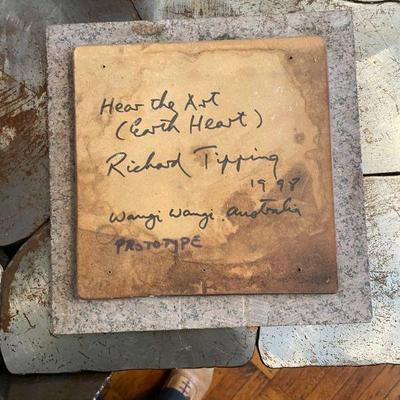 Hear the Art
(Earth Heart)
Richard Tipping
1998
Wangi Wangi. Australia
PROTOTYPE